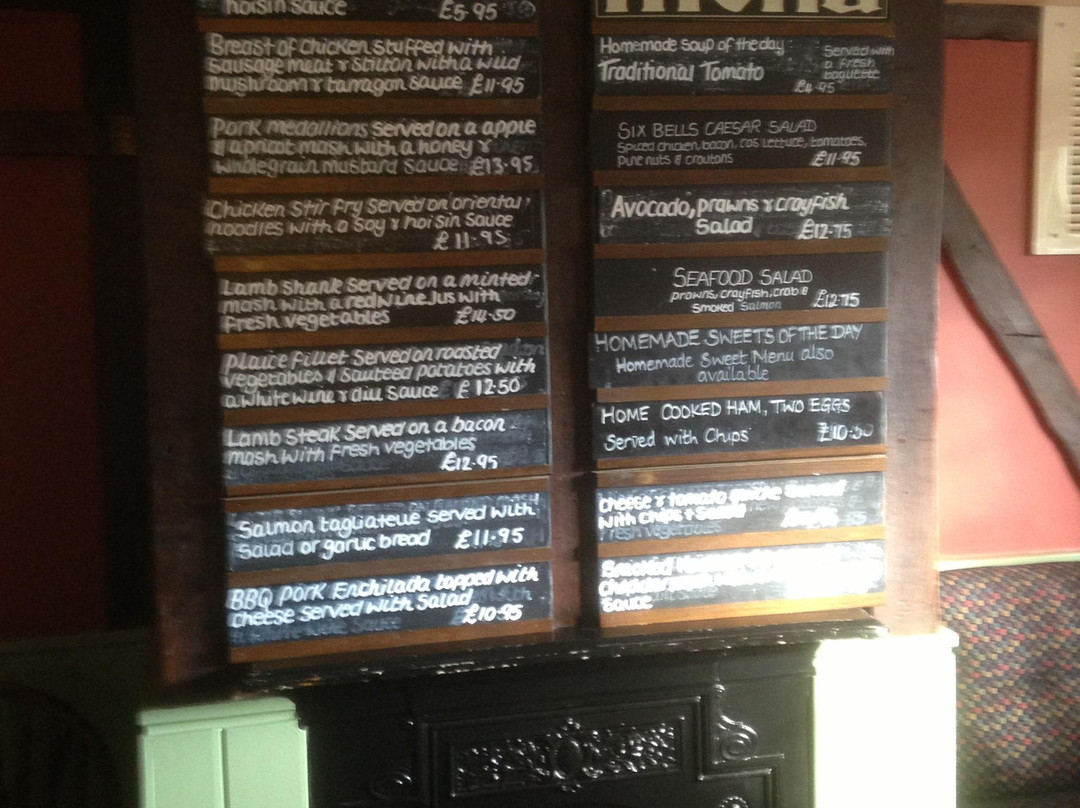 hoisin sauce £5.95
Breast of Chicken stuffed with
sausage meat & Stilton with a wild
mushroom & tarragon sauce £11.95
Pork medallions served on a apple
& apricot mash with a honey &
wholegrain mustard sauce £13.95
Chicken Stir fry served on oriental
noodles with a Soy & hoisin Sauce
£11.95
Lamb Shank Served on a minted
mash with a red wine Jus with
fresh vegetables £14.50
Plaice fillet Served on roasted
vegetables & Sauteed potatoes with
a white wine & dill Sauce £12.50
Lamb Steak Served on a bacon
mash with fresh vegetables
£12.95
Salmon tagliatelle served with
Salad or garlic bread £11.95
BBQ Pork Enchilada topped with
cheese served with Salad
£10.95
menu
Homemade Soup of the day Served with
a fresh
Traditional Tomato baguette
£4.95
SIX BELLS CAESAR SALAD
Spiced chicken, bacon, cos lettuce, tomatoes,
pine nuts & croutons £11.95
Avocado, prawns & crayfish
Salad £12.75
SEAFOOD SALAD
prawns, crayfish, crab &
Smoked Salmon £12.75
HOMEMADE SWEETS OF THE DAY
Homemade Sweet Menu also
available
HOME COOKED HAM, TWO EGGS
Served with Chips £10.50
Cheese & tomato quiche Served
with Chips & Salad
Fresh vegetables
Sauce